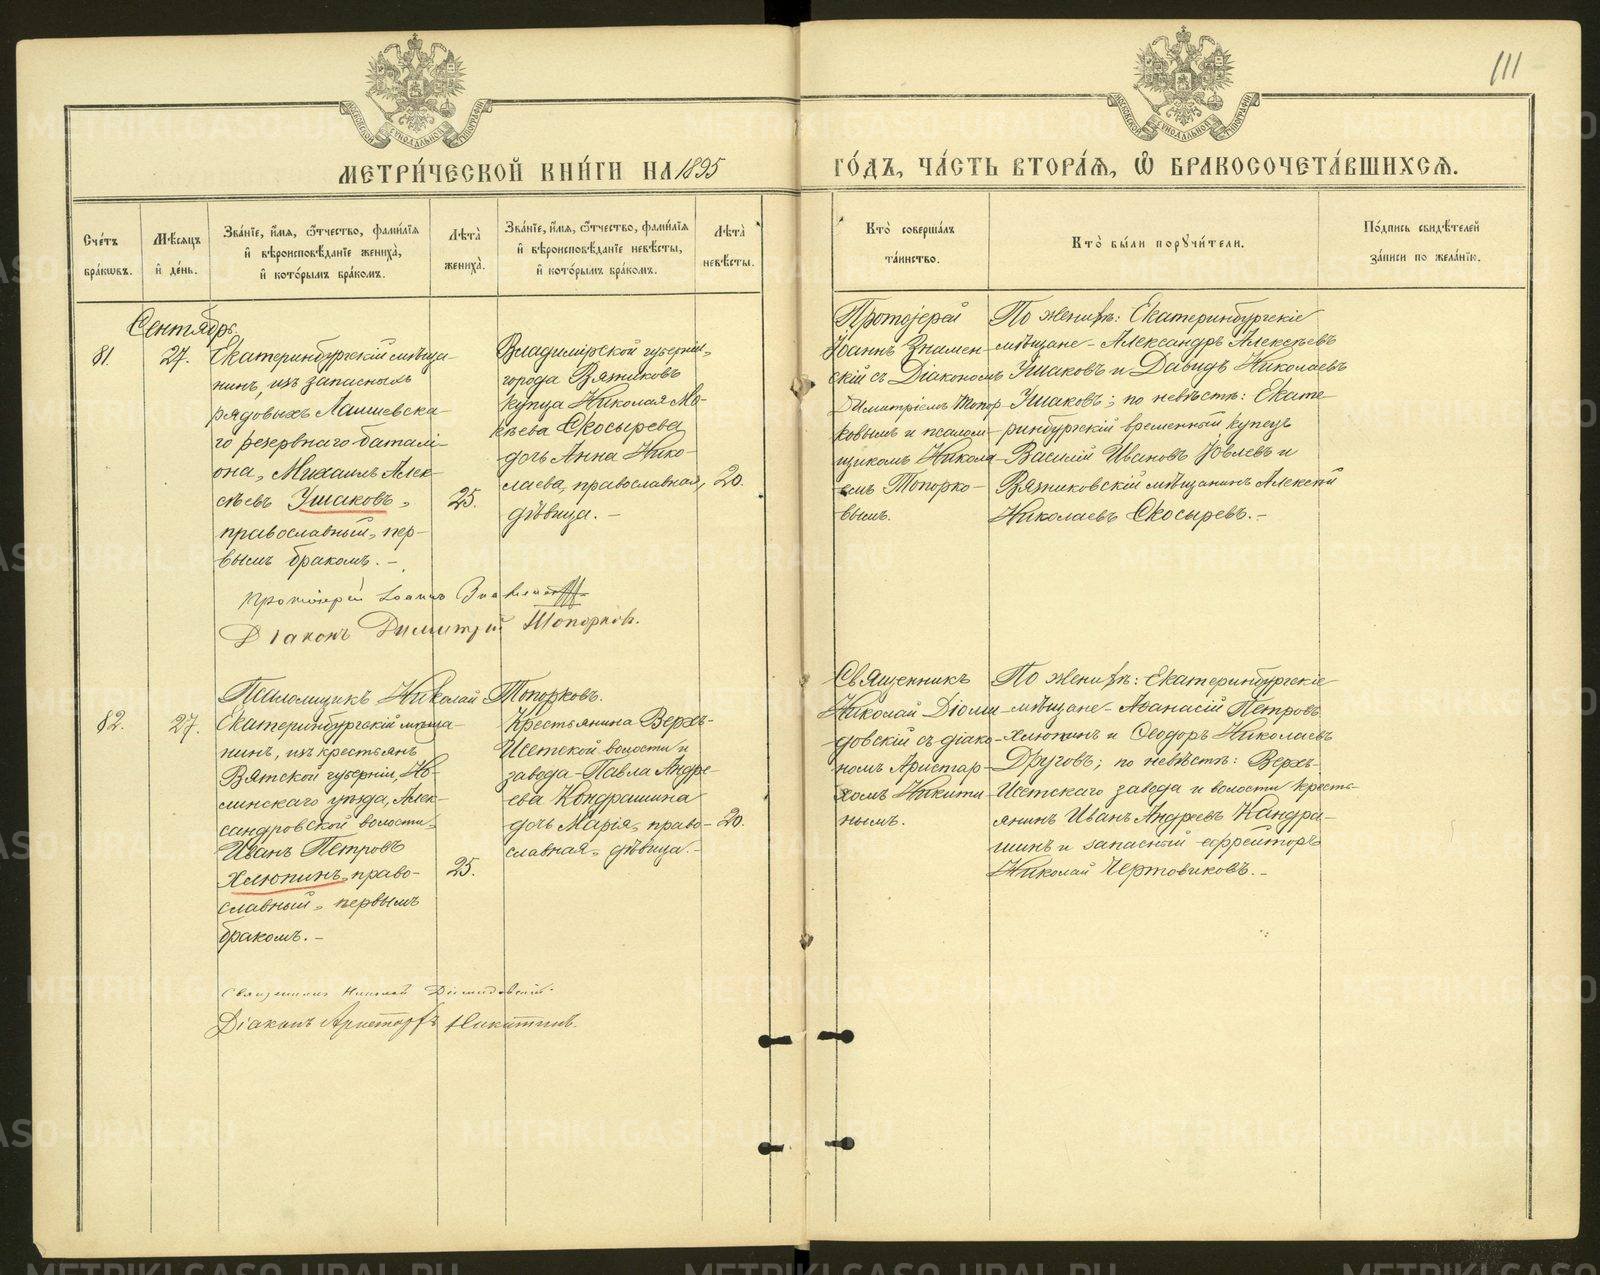 111
МЕТРИ́ЧЕСКОЙ КНИ́ГИ НА 1895 ГО́ДЪ, ЧА́СТЬ ВТОРА́Я, Ѽ БРАКОСОЧЕТА́ВШИХСЯ.
Сче́тъ бра́кѡвъ.
Мѣ́сяцъ и҆ де́нь.
Зва́нїе, и҆́мя, ѻ҆́тчество, фами́лїя и҆ вѣроисповѣ́данїе жениха̀, и҆ кото́рымъ бра́комъ.
Лѣта̀ жениха̀.
Зва́нїе, и҆́мя, ѻ҆́тчество, фами́лїя и҆ вѣроисповѣ́данїе невѣ́сты, и҆ кото́рымъ бра́комъ.
Лѣта̀ невѣ́сты.
Кто̀ соверша́лъ та́инство.
Кто̀ бы́ли поручи́тели.
По́дпись свидѣ́телей за́писи по жела́нїю.
Сентябрь.
81.
27.
Екатеринбургскій мѣща-
нинъ, изъ запасныхъ
рядовыхъ Лаишевска-
го резервнаго баталі-
она, Михаилъ Алек-
сѣевъ Ушаковъ,
православный, пер-
вымъ бракомъ. –
25.
Владимірской губерніи,
города Вязниковъ
купца Николая Мо-
кѣева Скосырева
дочь Анна Нико-
лаева, православная,
дѣвица. –
20.
Протоіерей
Іоаннъ Знамен-
скій съ Діакономъ
Димитріемъ Топор-
ковымъ и псалом-
щикомъ Никола-
емъ Топорко-
вымъ.
По женихѣ: Екатеринбургскіе
мѣщане – Александръ Алексѣевъ
Ушаковъ и Давидъ Николаевъ
Ушаковъ; по невѣстѣ: Екате-
ринбургскій временный купецъ
Василій Ивановъ Іовлевъ и
Вязниковскій мѣщанинъ Алексѣй
Николаевъ Скосыревъ. –
Протоіерей Іоаннъ Знаменскій
Діаконъ Димитрій Топорковъ.
Псаломщикъ Николай Топорковъ.
82.
27.
Екатеринбургскій мѣща-
нинъ, изъ крестьянъ
Вятской губерніи, Но-
линскаго уѣзда, Алек-
сандровской волости,
Иванъ Петровъ
Хлюпинъ, право-
славный, первымъ
бракомъ. –
25.
Крестьянина Верхъ-
Исетской волости и
завода – Павла Андре-
ева Кондрашина
дочь Марія, право-
славная, дѣвица. –
20.
Священникъ
Николай Діоми-
довскій съ діако-
номъ Аристар-
хомъ Никити-
нымъ.
По женихѣ: Екатеринбургскіе
мѣщане – Аѳанасій Петровъ
Хлюпинъ и Ѳеодоръ Николаевъ
Друговъ; по невѣстѣ: Верхъ-
Исетскаго завода и волости кресть-
янинъ Иванъ Андреевъ Кандра-
шинъ и запасный ефрейторъ
Николай Чертовиковъ. –
Священникъ Николай Діомидовскій.
Діаконъ Аристархъ Никитинъ.
METRIKI.GASO-URAL.RU